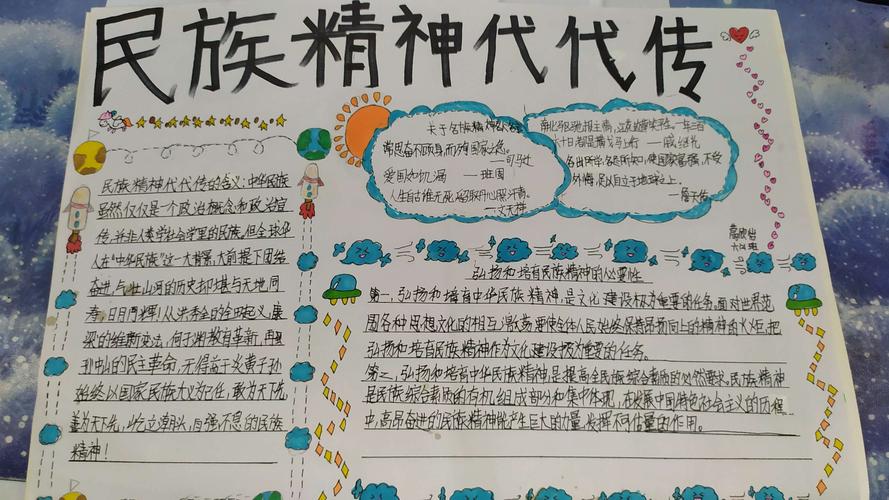 民族精神代代传
民族精神代代传的含义:中华民族
虽然仅仅是一个政治概念和政治宣
传,并非人类学社会学里的民族。但全球华
人在“中华民族”这一大背景,大前提下团结
奋进,与壮山河的历史却堪与天地同
寿,日月同辉!从洪秀全的金田起义,康
梁的维新变法,何子渊教育革新,再到
孙中山的民主革命,无得益于炎黄子孙
始终以国家民族大义为己任,敢为天下先
善为天下先,屹立潮头,自强不息的民族
精神!
关于名族精神的名言
常思奋不顾身,而殉国家之急。
——司马迁
爱国如饥渴 ——班固
人生自古谁无死,留取丹心照汗青。
——文天祥
南北驱驰报主情,江花边草笑平生。一年三百
六十日,都是横戈马上行 ——戚继光
各出所学,各尽所知,使国家富强,不受
外侮,足以自立于地球之上。
——詹天佑
弘扬和培育民族精神的必要性
第一,弘扬和培育中华民族精神,是文化建设极为重要的任务。面对世界范
围各种思想文化的相互激荡,要使全体人民始终保持昂扬向上的精神的火炬,把
弘扬和培育民族精神作为文化建设极为重要的任务。
第二,弘扬和培育中华民族精神,是提高全民族综合素质的必然要求。民族精神
是民族综合素质的有机组成部分和集中体现,在发展中国特色社会主义的历程
中,高昂奋进的民族精神能产生巨大的力量,发挥不可估量的作用。